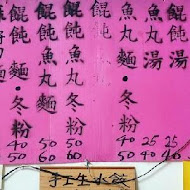 餛飩湯
25
40
魚丸湯
25
40
魚丸・冬粉
40
50
餛飩魚丸冬粉
50
60
餛飩魚丸麵
50
60
餛飩麵・冬粉
40
50
手工生水餃